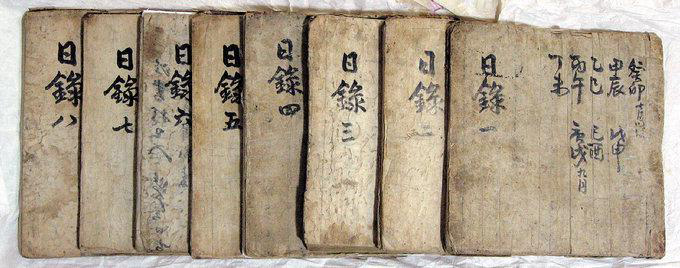 癸卯
甲辰 戊申
乙巳 己酉
丙午 庚戌九月
丁未
日錄一
日錄二
日錄三
日錄四
日錄五
日錄六
日錄七
日錄八